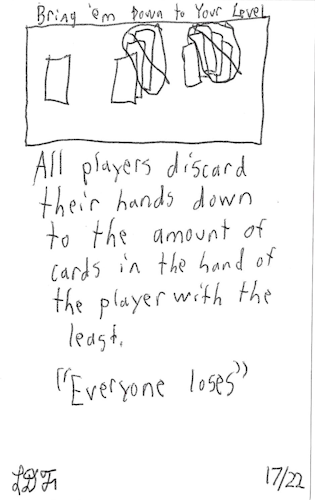 Bring 'em Down to Your Level
All players discard
their hands down
to the amount of
cards in the hand of
the player with the
least.
("Everyone loses")
17/22